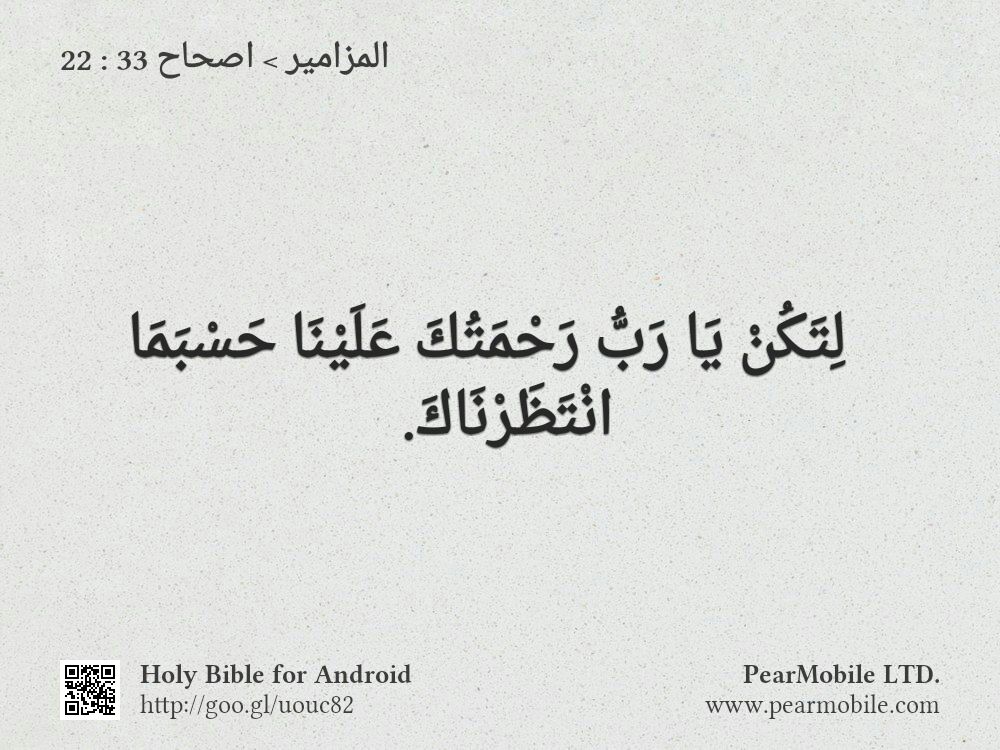 المزامير > اصحاح 33 : 22
لِتَكُنْ يَا رَبُّ رَحْمَتُكَ عَلَيْنَا حَسْبَمَا
انْتَظَرْنَاكَ.
Holy Bible for Android
http://goo.gl/uouc82
PearMobile LTD.
www.pearmobile.com